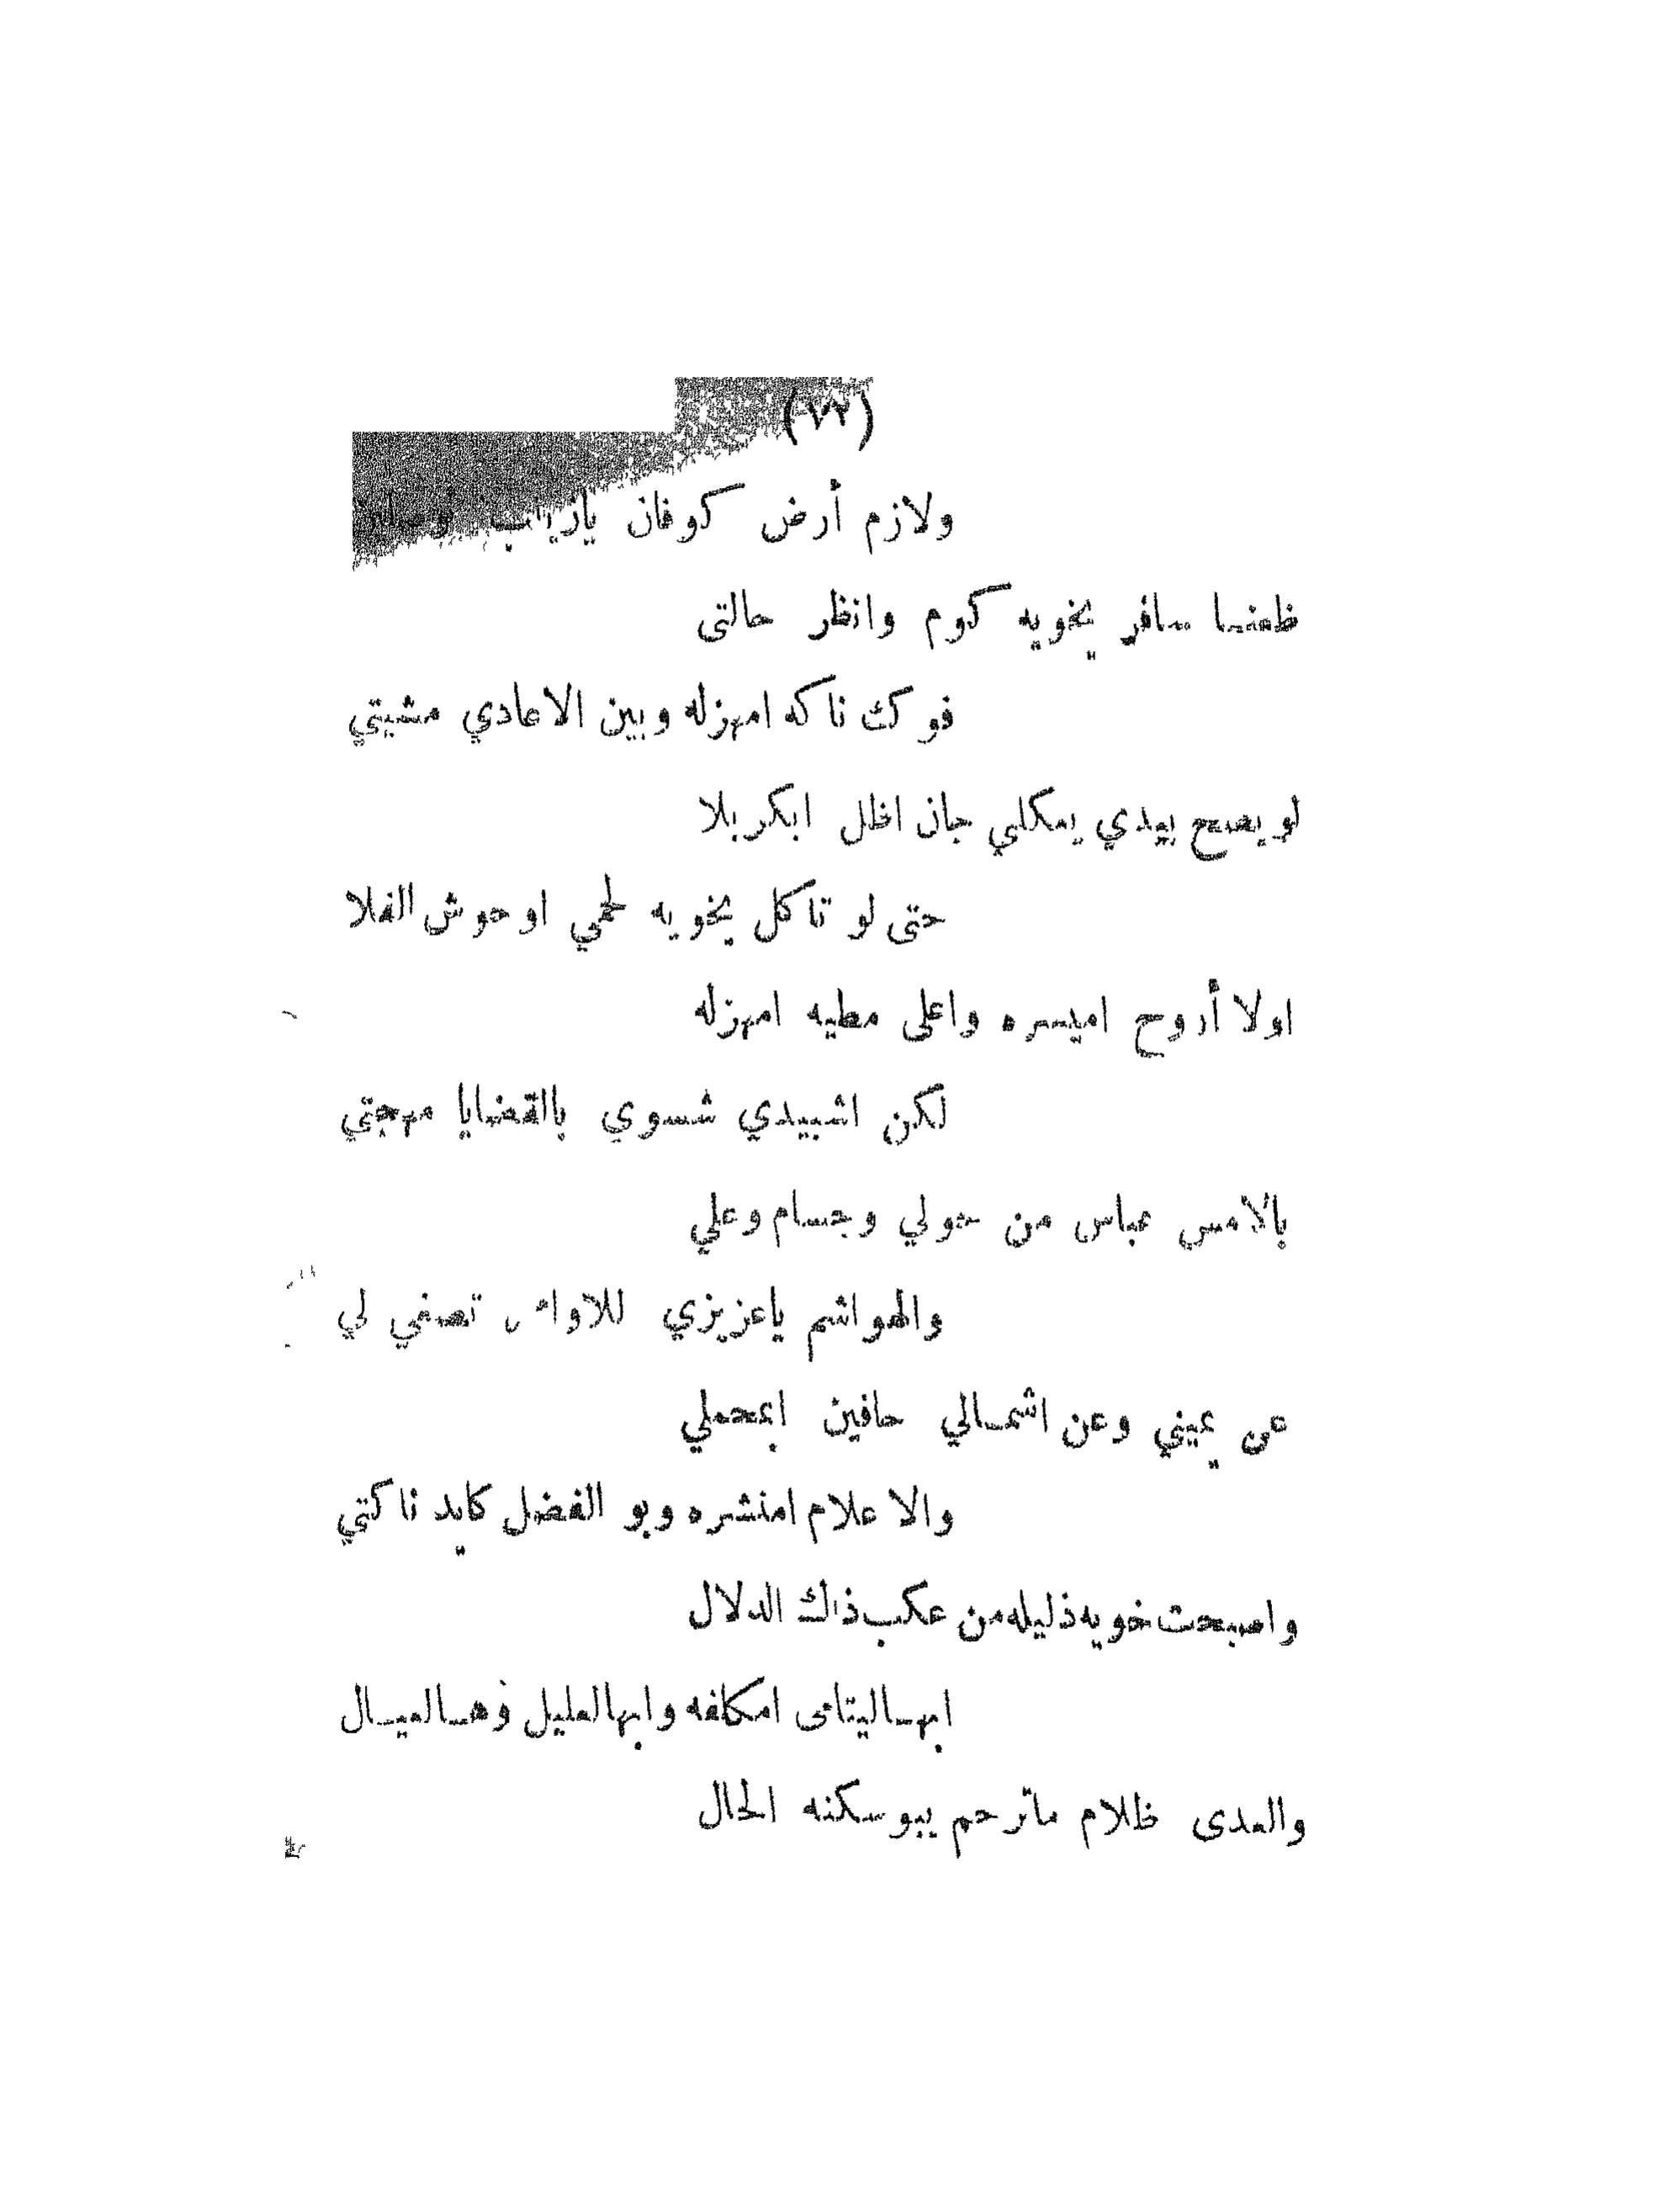 (٧٢)
ولازم أرض كوفان يازينب
ظعنـا سافر يخويه كوم وانظر حالتى
فوكك ناكه امهزله وبين الاعادي مشيتي
لو يصح بيدي يمكلي جان اظل ابكربلا
حتى لو تاكل يخويه لحمي اوحوش الفلا
اولا أروح اميسره واعلى مطيه امهزله
لكن اشبيدي شسوي بالقضايا مهجتي
بالامس عباس من حولي وجسام وعلي
والهواشم ياعزيزي تصغي لي
عن يميني وعن اشمـالي حافين ابمحملي
والاعلام امنشره وبو الفضل كايد ناكتي
واصبحت خويه ذليله من عكب ذاك الدلال
ابهـاليتامى امكلفه وابهالعليل وهـالعيـال
والعدى ظلام ماترحم يبو سكنه الحال